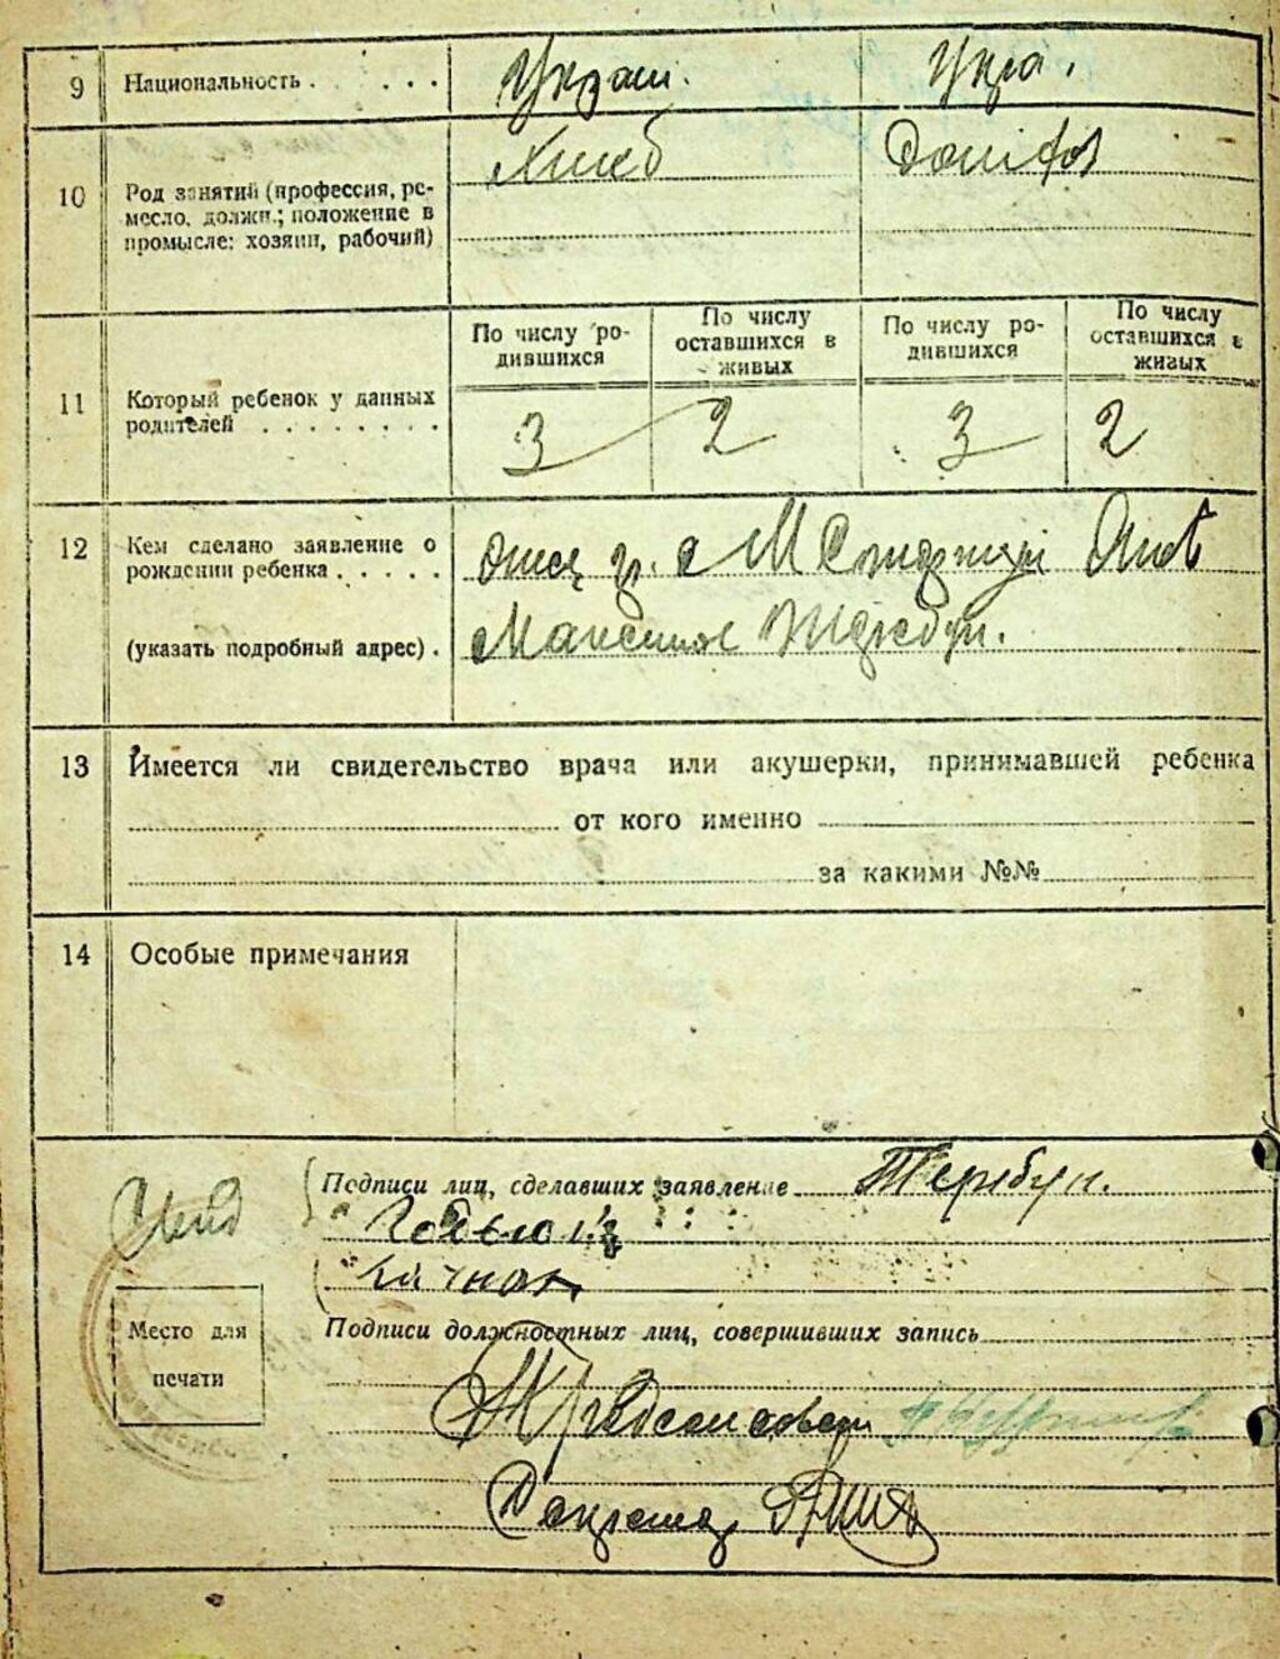 9 Национальность . . . . . Украин. Укра.
10 Род занятий (профессия, ре-
месло, должн.; положение в
промысле: хозяин, рабочий)
Хлеб Домхоз
По числу ро-
дившихся
По числу
оставшихся в
живых
По числу ро-
дившихся
По числу
оставшихся в
живых
11 Который ребенок у данных
родителей . . . . . . . .
3 2 3 2
12 Кем сделано заявление о
рождении ребенка . . . . .
отец гр. с М
(указать подробный адрес) .
13 Имеется ли свидетельство врача или акушерки, принимавшей ребенка
от кого именно
за какими №№
14 Особые примечания
Подписи лиц, сделавших заявление Теребун.
Место для
печати
Подписи должностных лиц, совершивших запись
Предсельсовета
Секретар